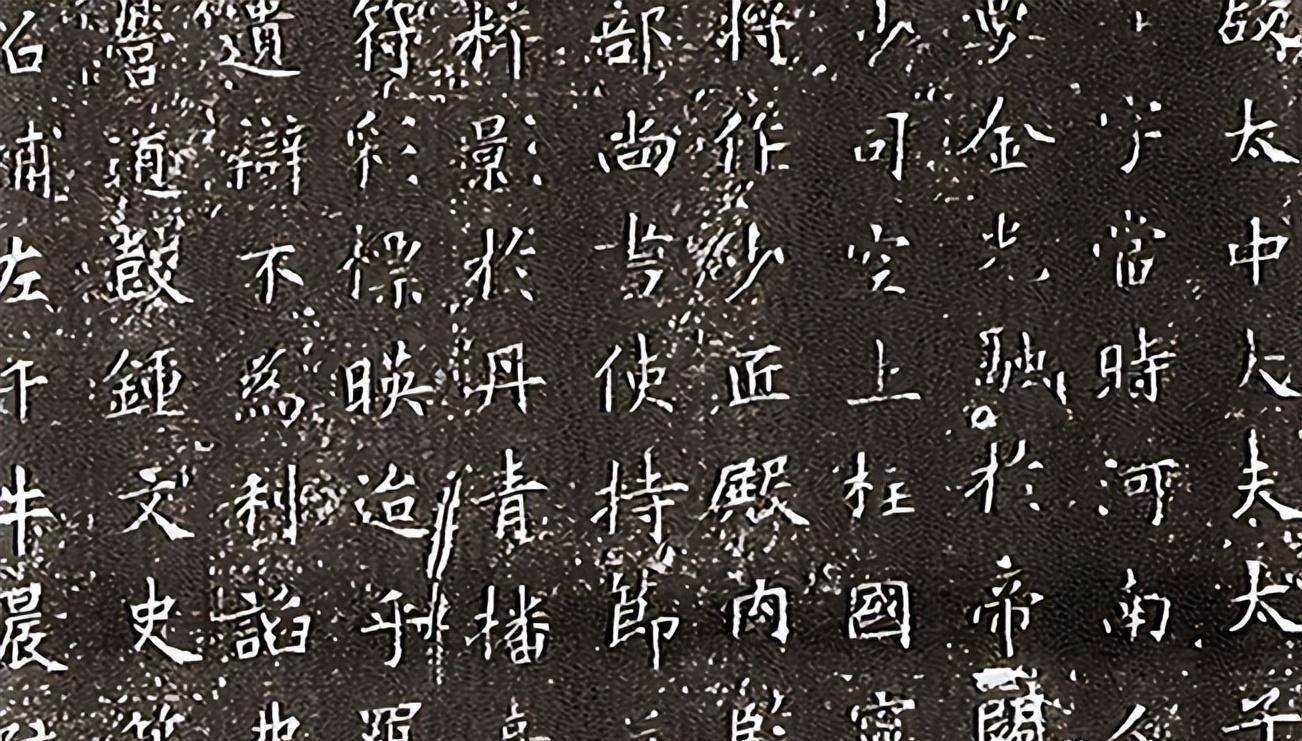 太中大夫太子
字當時河南
金光馳於帝闕
少司空上柱國
將作匠殿內監
部尚書使持節
粹影於丹青播
符彩標暎迨乎
遺辯不為利諂也
譽道鍾文史
左千牛晨